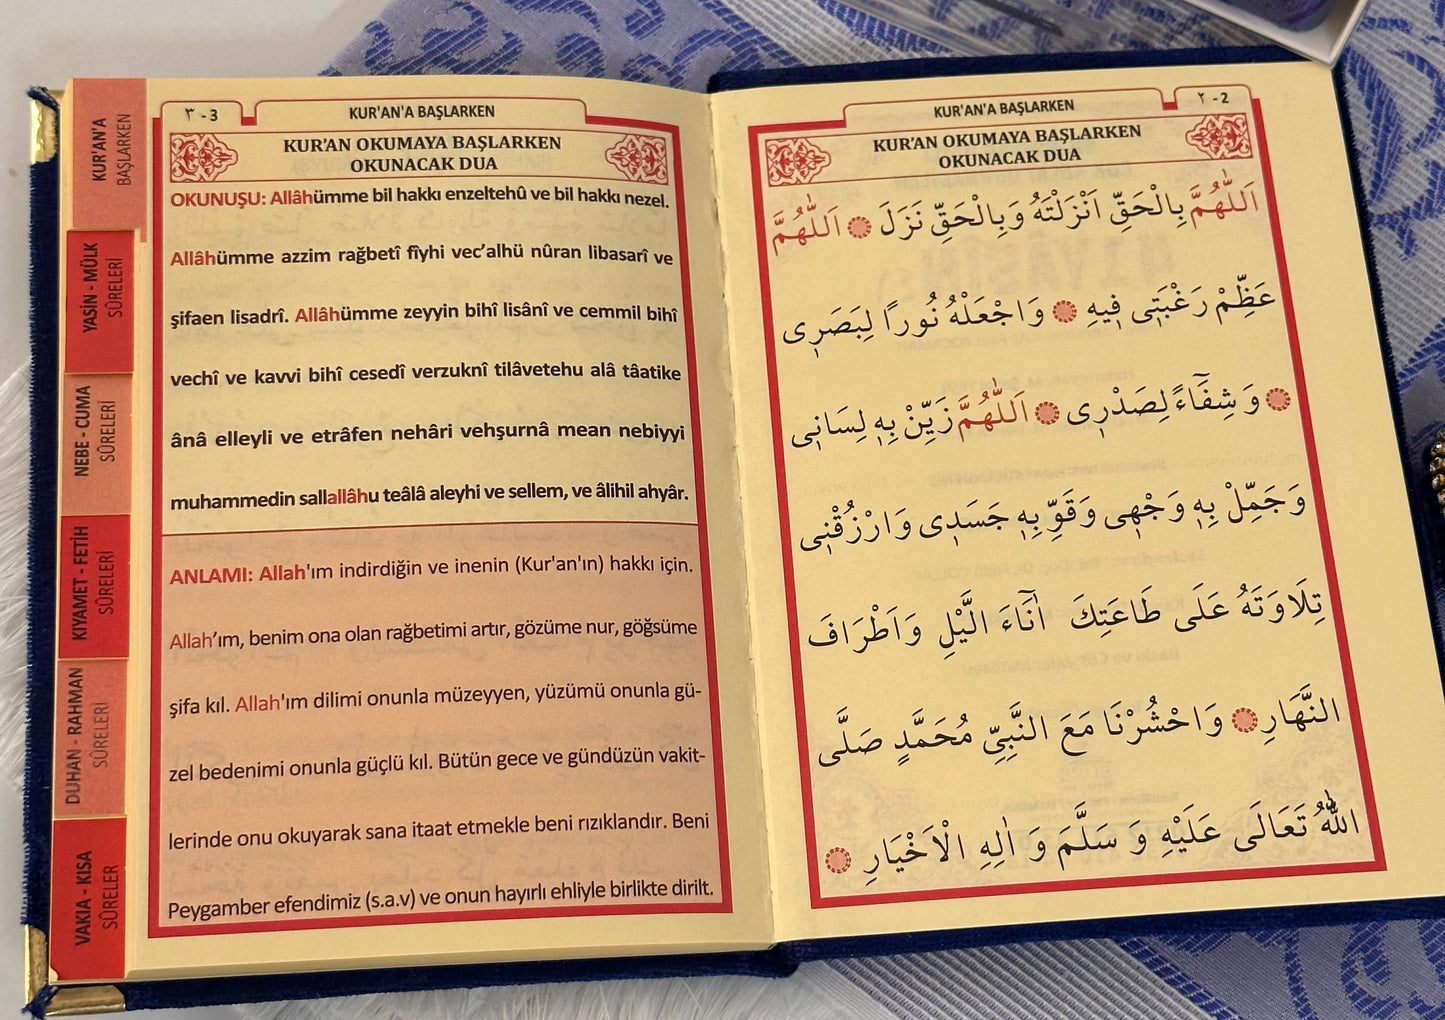 KUR'AN'A
BAŞLARKEN
YASİN - MÜLK
SÛRELERİ
NEBE - CUMA
SÛRELERİ
KIYAMET - FETİH
SÛRELERİ
DUHAN - RAHMAN
SÛRELERİ
VAKIA - KISA
SÛRELER
٣ - 3
KUR'AN'A BAŞLARKEN
KUR'AN OKUMAYA BAŞLARKEN
OKUNACAK DUA
OKUNUŞU: Allâhümme bil hakkı enzeltehû ve bil hakkı nezel.
Allâhümme azzim rağbetî fîyhi vec'alhü nûran libasarî ve
şifaen lisadrî. Allâhümme zeyyin bihî lisânî ve cemmil bihî
vechî ve kavvi bihî cesedî verzuknî tilâvetehu alâ tâatike
ânâ elleyli ve etrâfen nehâri vehşurnâ mean nebiyyi
muhammedin sallallâhu teâlâ aleyhi ve sellem, ve âlihil ahyâr.
ANLAMI: Allah'ım indirdiğin ve inenin (Kur'an'ın) hakkı için.
Allah'ım, benim ona olan rağbetimi artır, gözüme nur, göğsüme
şifa kıl. Allah'ım dilimi onunla müzeyyen, yüzümü onunla gü-
zel bedenimi onunla güçlü kıl. Bütün gece ve gündüzün vakit-
lerinde onu okuyarak sana itaat etmekle beni rızıklandır. Beni
Peygamber efendimiz (s.a.v) ve onun hayırlı ehliyle birlikte dirilt.
KUR'AN'A BAŞLARKEN
٢ - 2
KUR'AN OKUMAYA BAŞLARKEN
OKUNACAK DUA
اَللّٰهُمَّ بِالْحَقِّ اَنْزَلْتَهُ وَبِالْحَقِّ نَزَلَ اَللّٰهُمَّ
عَظِّمْ رَغْبَتٖى فٖيهِ وَاجْعَلْهُ نُورًا لِبَصَرٖى
وَشِفَٓاءً لِصَدْرٖى اَللّٰهُمَّ زَيِّنْ بِهٖ لِسَانٖى
وَجَمِّلْ بِهٖ وَجْهٖى وَقَوِّ بِهٖ جَسَدٖى وَارْزُقْنٖى
تِلَاوَتَهُ عَلَى طَاعَتِكَ اٰنَٓاءَ الَّيْلِ وَاَطْرَافَ
النَّهَارِ وَاحْشُرْنَا مَعَ النَّبِيِّ مُحَمَّدٍ صَلَّى
اللّٰهُ تَعَالَى عَلَيْهِ وَ سَلَّمَ وَ اٰلِهِ الْاَخْيَارِ